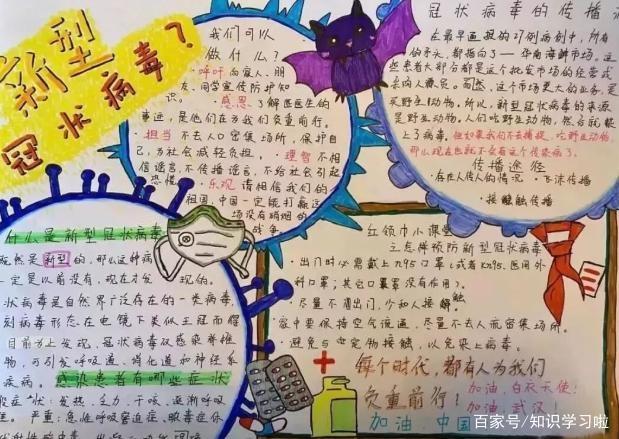 新型
冠状病毒?
我们可以
做什么?
·呼吁向家人、朋
友、同学宣传防护知
识。·感恩 了解医医生的
事迹,是他们在为我们负重前行。
·担当 不去人口密集场所,保护自
己,为社会减轻负担。·理智 不相
信谣言,不传播谣言,不给社会引起
恐慌。·乐观 请相信我们的
祖国,中国一定能打赢这
场没有硝烟的
战争。
冠状病毒的传播
在最早通报的27例病例中,所有
的矛头,都指向了——华南海鲜市场。这
些患者大部分都是这个批发市场的经营或
采购人员。而然,这个市场更大的业务,是
买野生动物。所以,新型冠状病毒的来源
是野生动物,人们吃野生动物,然后就被
上了病毒。但如果我们不去捕捉、吃野生动物,
那么现在也就不会有这个传染病了。
传播途径
·存在人传人的情况 ·飞沫传播
·接触传播
什么是新型冠状病毒
既然是新型的,那么这种病
一定是以前没有,现在才发现的。
状病毒是自然界广泛存在的一类病毒,
刻病毒形态在电镜下类似王冠而得
目前为止发现,冠状病毒仅感染脊椎
物,可引发呼吸道、消化道和神经系
疾病。感染患者有哪些症状
症状:发热、乏力、干咳、逐渐呼吸
严重:急性呼吸窘迫症、脓毒症休
红领巾小课堂
三点帮预防新型冠状病毒
·出门时必需戴上N95口罩(或者KN95、医用外
科口罩;其它口罩没有作用)。
·尽量不离出门,少和人接触
家中要保持空气流通,尽量不去人流密集场所。
·避免与宠物接触,以免染上病毒。
每个时代,都有人为我们
负重前行!
加油,白衣天使!
加油,武汉!
加油 中国
百家号/知识学习啦